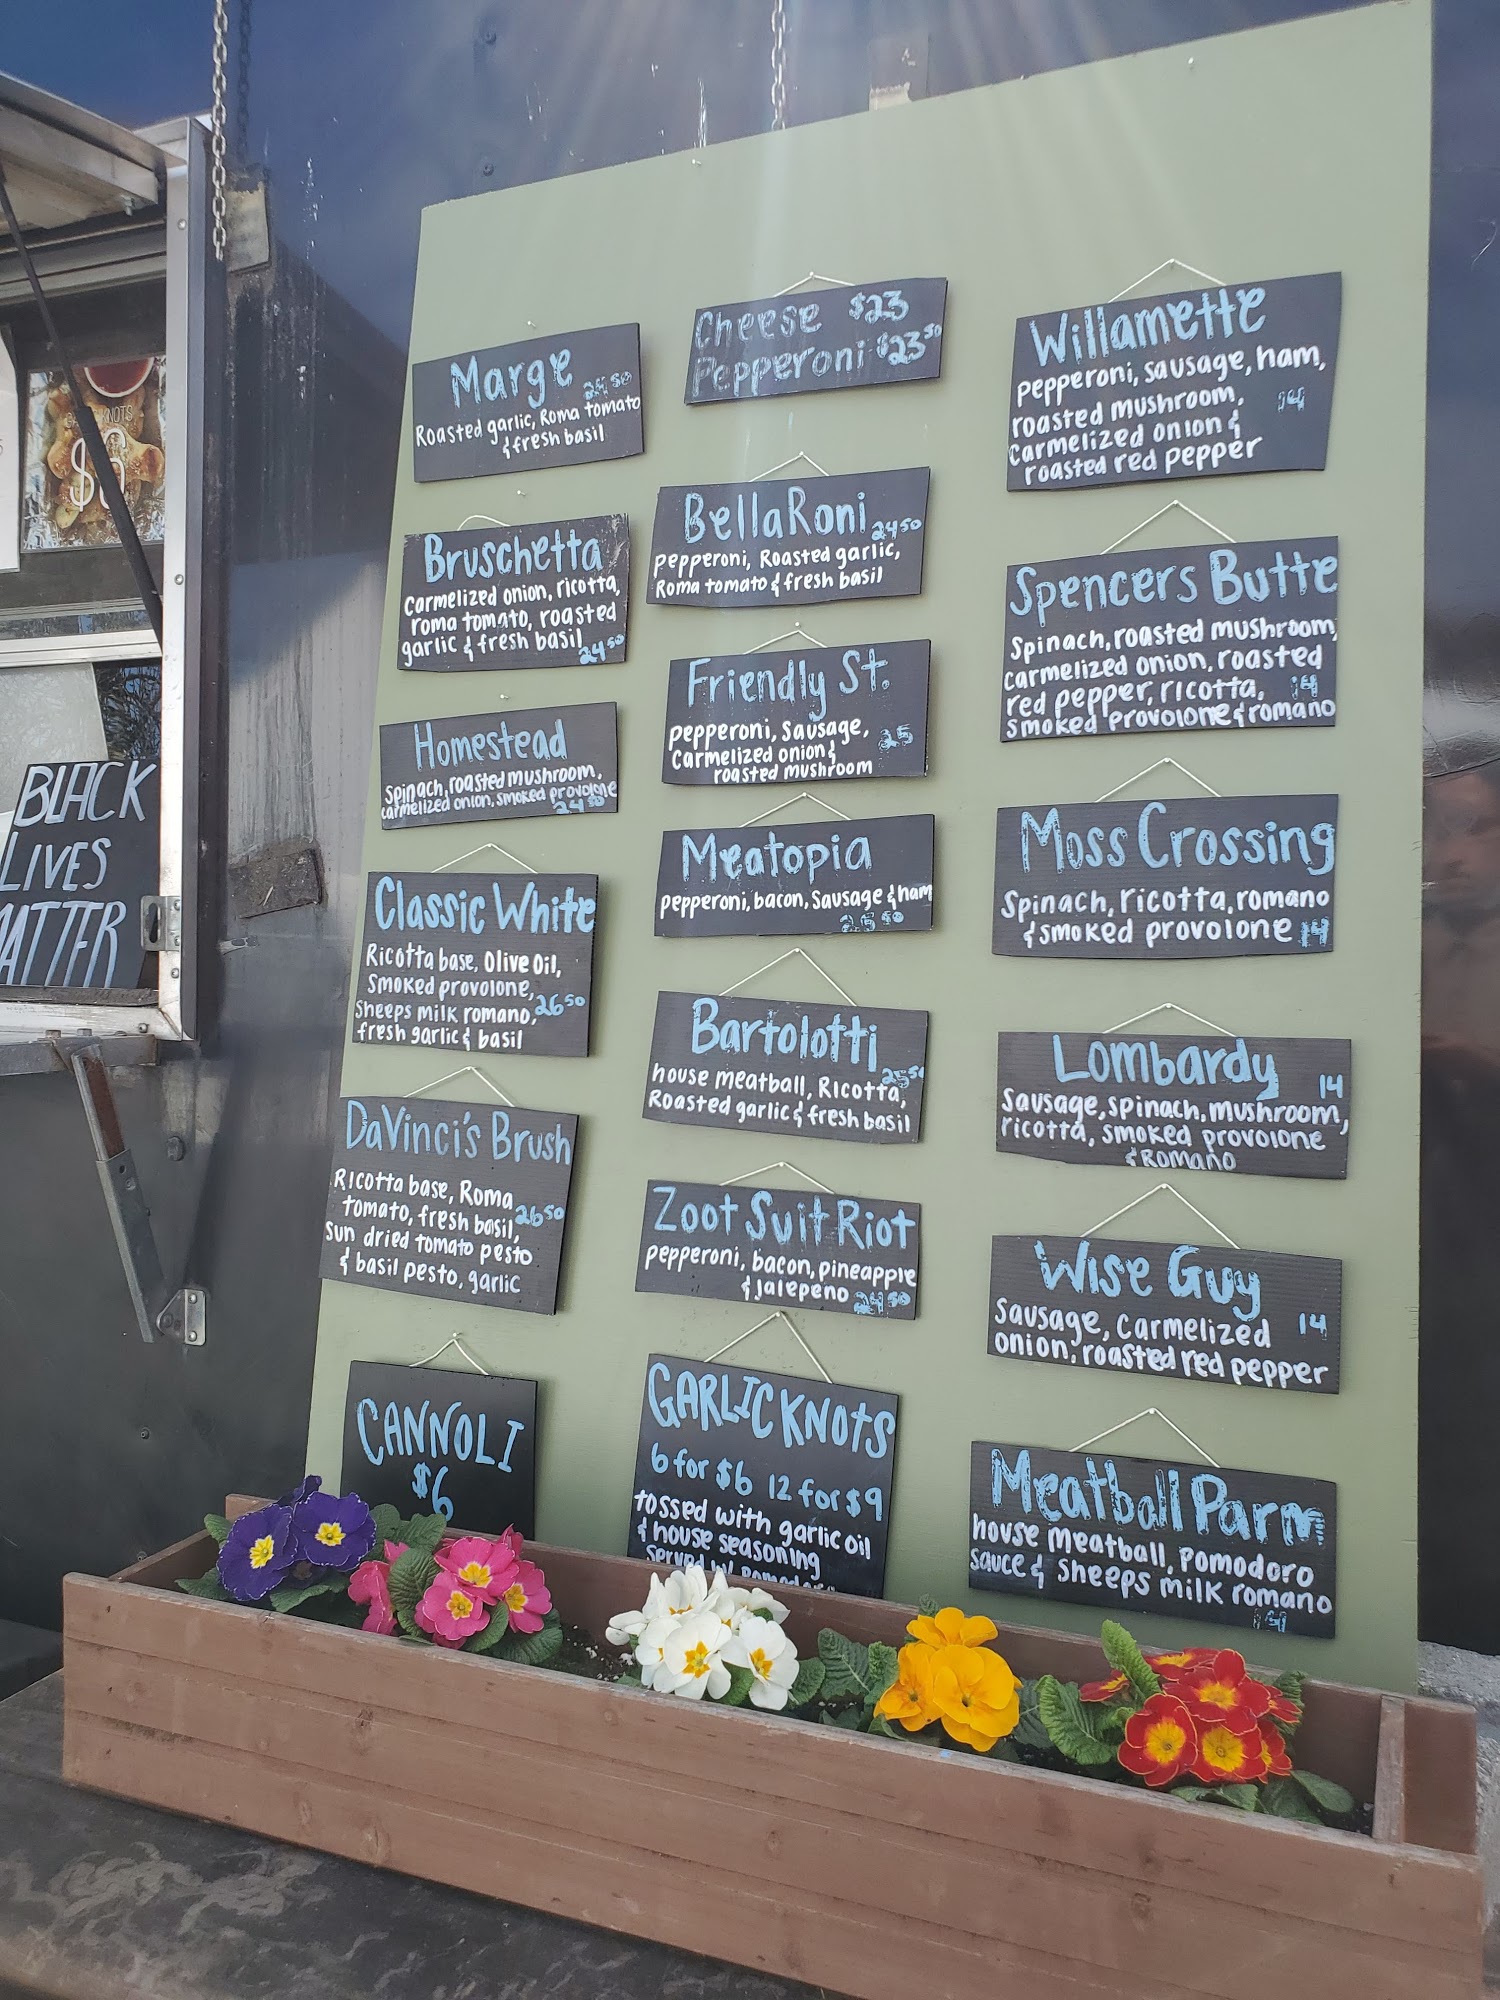 Marge 24 50
Roasted garlic, Roma tomato
& fresh basil
Bruschetta
carmelized onion, ricotta,
roma tomato, roasted
garlic & fresh basil 24 50
Homestead
Spinach, roasted mushroom,
carmelized onion, smoked provolone
24 50
Classic White
Ricotta base, Olive Oil,
Smoked provolone,
Sheeps milk romano, 26 50
fresh garlic & basil
DaVinci's Brush
Ricotta base, Roma
tomato, fresh basil, 26 50
sun dried tomato pesto
& basil pesto, garlic
CANNOLI
$6
Cheese $23
Pepperoni $23 50
BellaRoni 24 50
pepperoni, Roasted garlic,
Roma tomato & fresh basil
Friendly St.
pepperoni, Sausage, 25
Carmelized onion &
roasted mushroom
Meatopia
pepperoni, bacon, Sausage & ham
25 50
Bartolotti 25 50
house meatball, Ricotta,
Roasted garlic & fresh basil
Zoot Suit Riot
pepperoni, bacon, pineapple
& jalepeno 24 50
GARLIC KNOTS
6 for $6 12 for $9
tossed with garlic oil
& house seasoning
Served w/ pomodoro
Willamette
pepperoni, sausage, ham,
roasted mushroom, 14
carmelized onion &
roasted red pepper
Spencers Butte
Spinach, roasted mushroom,
carmelized onion, roasted
red pepper, ricotta, 14
smoked provolone & romano
Moss Crossing
Spinach, ricotta, romano
& smoked provolone 14
Lombardy 14
Sausage, spinach, mushroom,
ricotta, smoked provolone
& Romano
Wise Guy
Sausage, carmelized 14
onion, roasted red pepper
Meatball Parm
house meatball, pomodoro
sauce & Sheeps milk romano
14
KNOTS
$6
BLACK
LIVES
MATTER